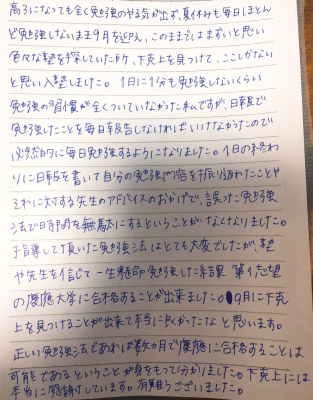 高3になっても全く勉強のやる気が出ず、夏休みも毎日ほとん
ど勉強しないまま9月を迎え、このままではまずいと思い
色々な塾を探していた所、下克上を見つけて、ここしかない
と思い入塾しました。1日に1分も勉強しないくらい
勉強の習慣が全くついていなかった私ですが、日報で
勉強したことを毎日報告しなければいけなかったので
必然的に毎日勉強するようになりました。1日の終わ
りに日報を書いて自分の勉強内容を振り返れたことや
それに対する先生のアドバイスのおかげで、誤った勉強
法で日時間を無駄にするということがなくなりました。
指導して頂いた勉強法はとても大変でしたが、塾
や先生を信じて一生懸命勉強した結果 第1志望
の慶應大学に合格することが出来ました。9月に下克
上を見つけることが出来て本当に良かったな と思います。
正しい勉強法であれば数カ月で慶應に合格することは
可能であるということが身をもって分かりました。下克上には
本当に感謝しています。有難うございました。